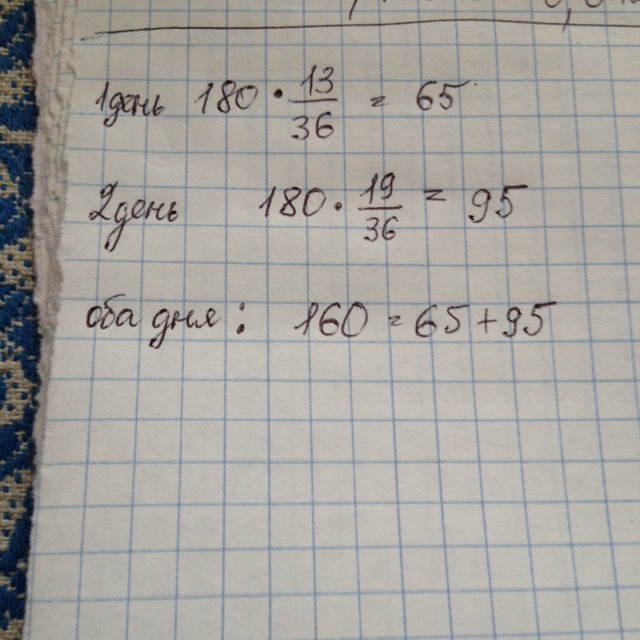 1день 180 · 13/36 = 65
2день 180 · 19/36 = 95
оба дня: 160 = 65 + 95